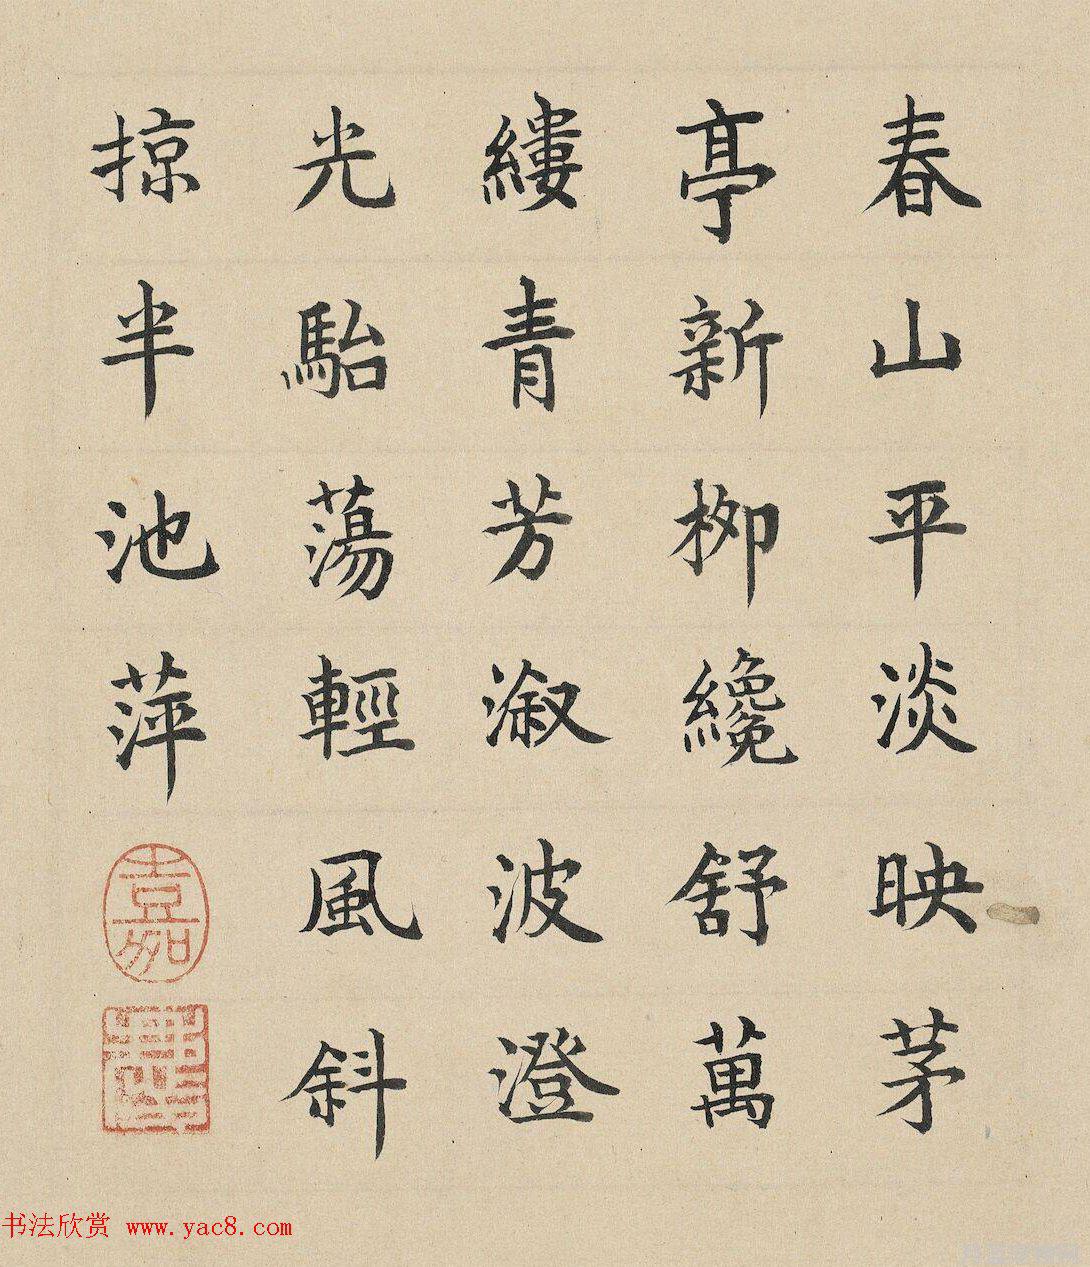 春山平淡映茅
亭新栁纔舒萬
縷青芳溆波澄
光駘蕩輕風斜
掠半池萍
嘉
书法欣赏 www.yac8.com